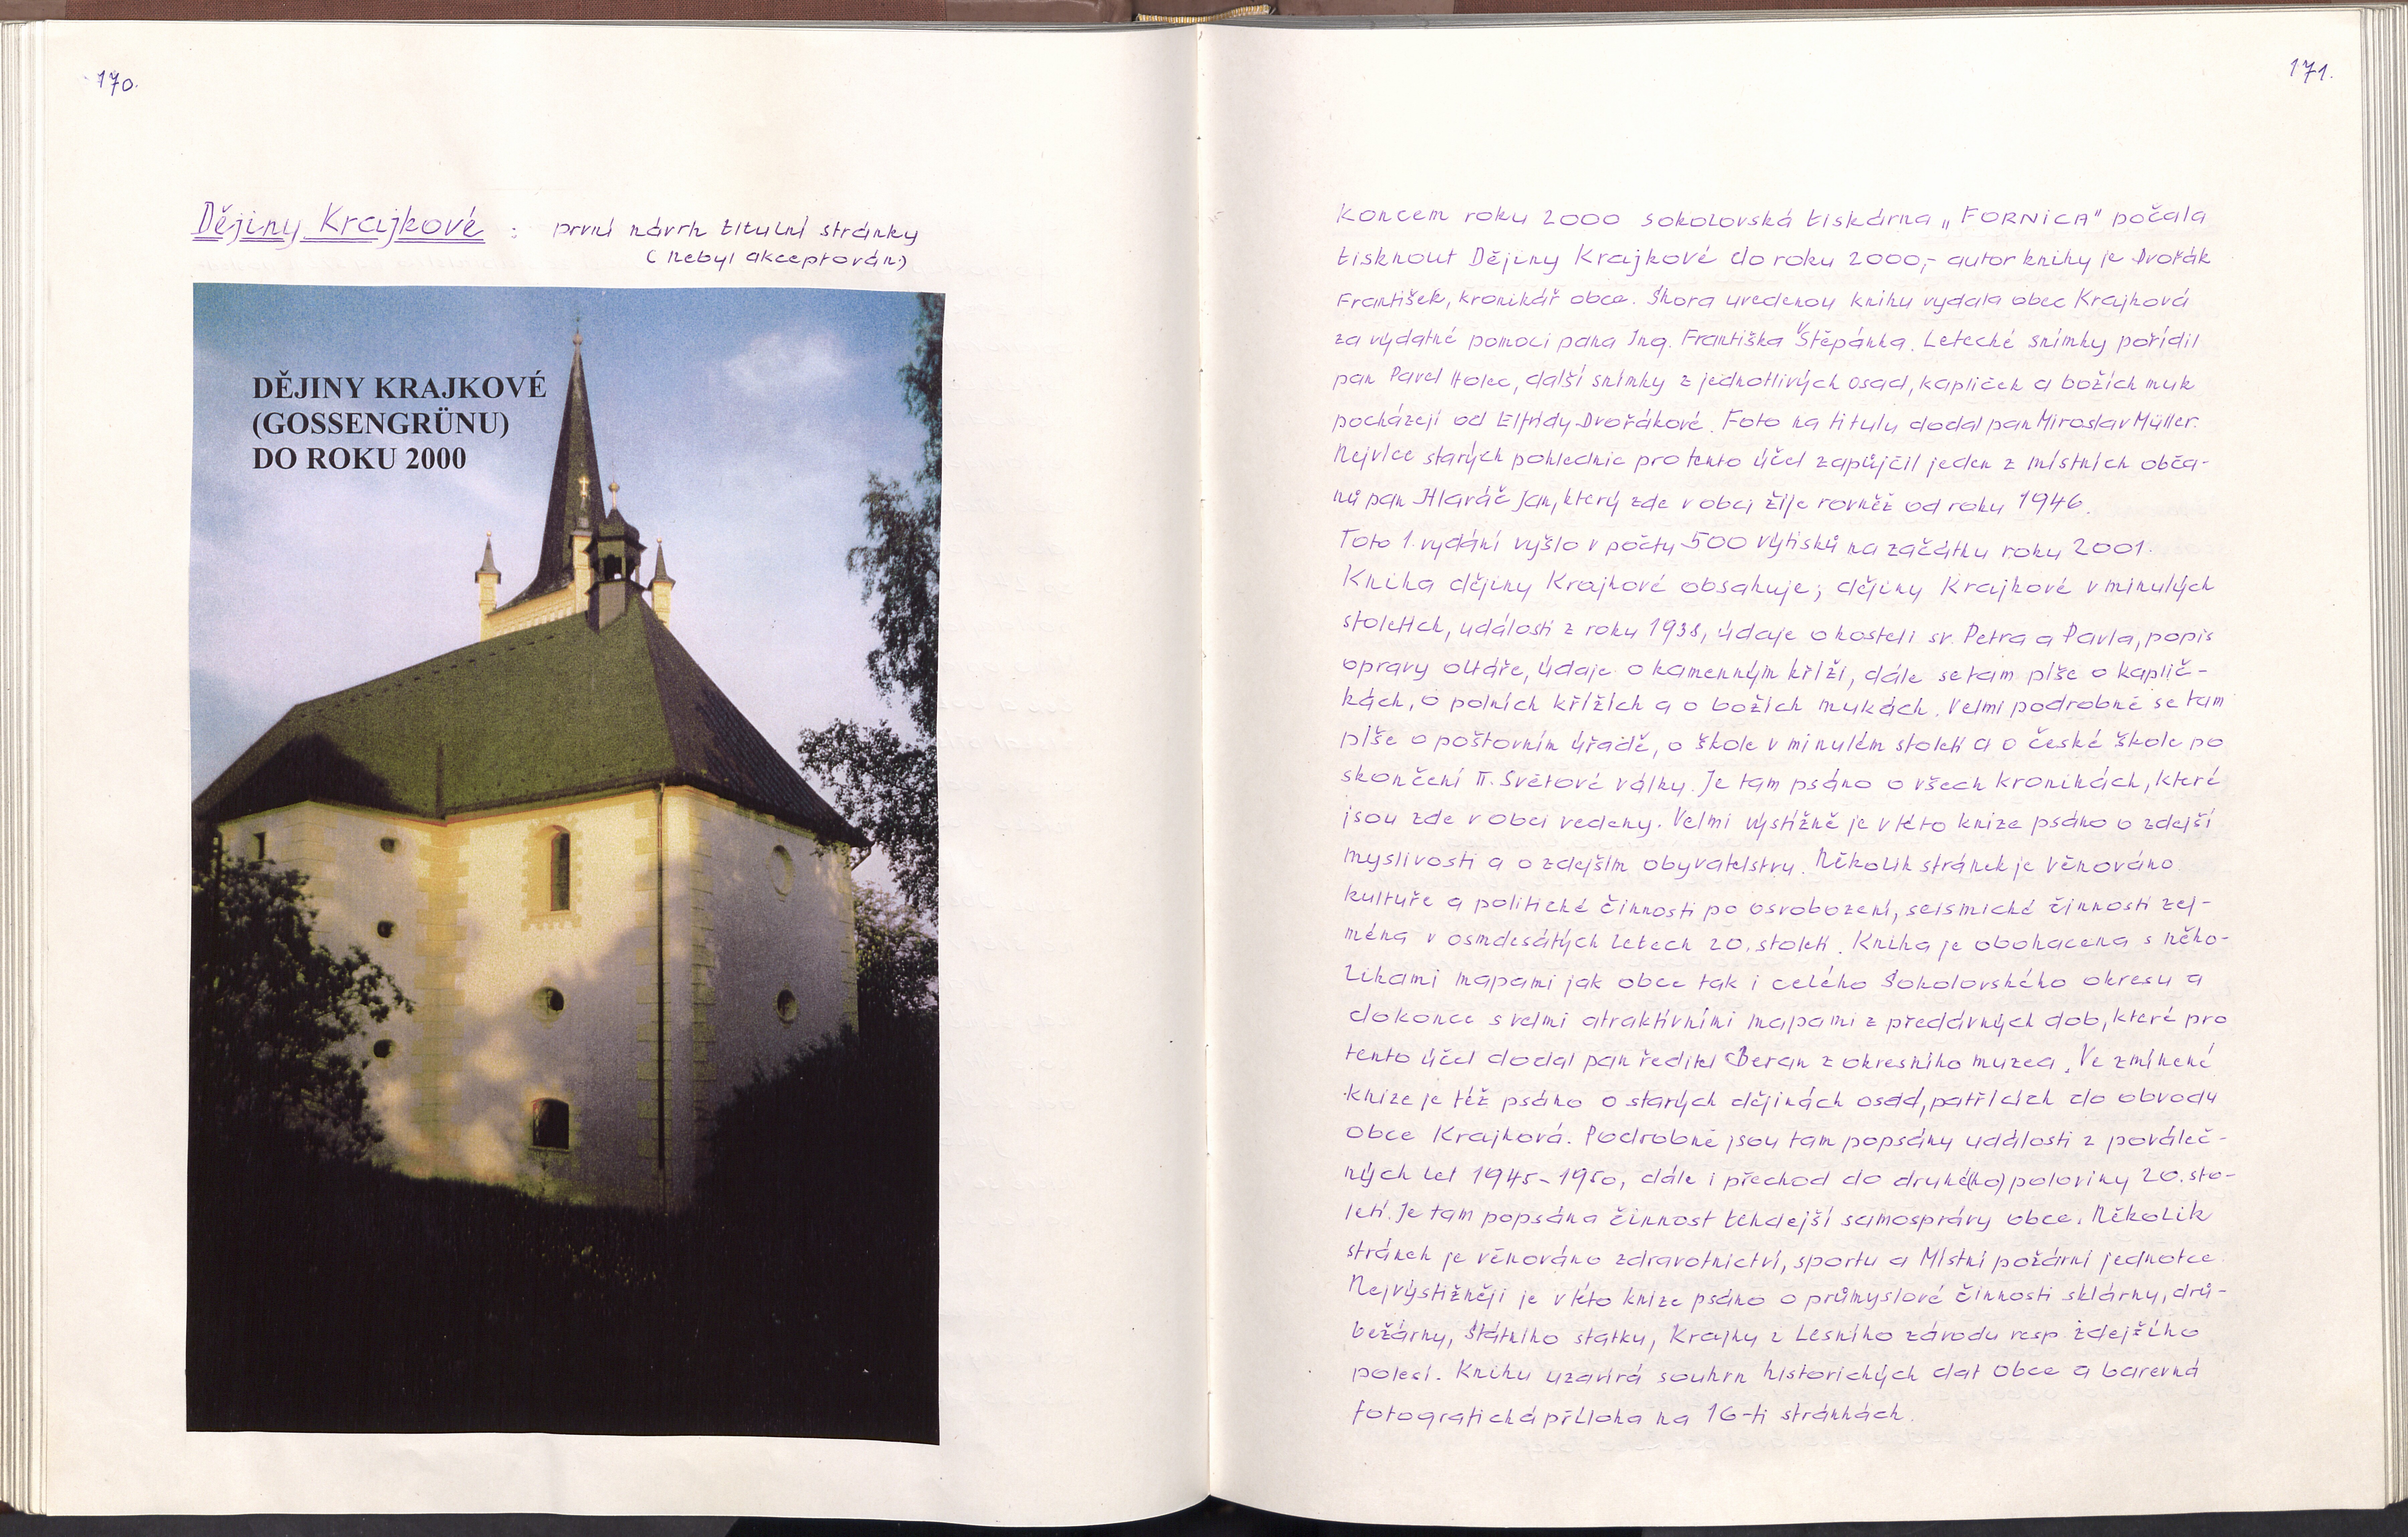 170.
Dějiny Krajkové : první návrh titulní stránky
(nebyl akceptován)
DĚJINY KRAJKOVÉ
(GOSSENGRÜNU)
DO ROKU 2000
171.
Koncem roku 2000 sokolovská tiskárna „FORNICA" počala
tisknout Dějiny Krajkové do roku 2000,- autor knihy je Dvořák
František, kronikář obce. Shora uvedenou knihu vydala obec Krajková
za vydatné pomoci pana Ing. Františka Štěpánka. Letecké snímky pořídil
pan Pavel Holec, další snímky z jednotlivých osad, kapliček a božích muk
pocházejí od Elfrídy Dvořákové. Foto na titulu dodal pan Miroslav Müller.
Nejvíce starých pohlednic pro tento účel zapůjčil jeden z místních obča-
nů pan Hlaváč Jan, který zde v obci žije rovněž od roku 1946.
Toto 1. vydání vyšlo v počtu 500 výtisků na začátku roku 2001.
Kniha dějiny Krajkové obsahuje; dějiny Krajkové v minulých
stoletích, události z roku 1938, údaje o kosteli sv. Petra a Pavla, popis
opravy oltáře, údaje o kamenným kříži, dále se tam píše o kaplič-
kách, o polních křížích a o božích mukách. Velmi podrobně se tam
píše o poštovním úřadě, o škole v minulém století a o české škole po
skončení II. Světové války. Je tam psáno o všech kronikách, které
jsou zde v obci vedeny. Velmi výstižně je v této knize psáno o zdejší
myslivosti a o zdejším obyvatelstvu. Několik stránek je věnováno
kultuře a politické činnosti po osvobození, seismické činnosti zej-
ména v osmdesátých letech 20. století. Kniha je obohacena s něko-
likami mapami jak obce tak i celého Sokolovského okresu a
dokonce s velmi atraktivními mapami z předávných dob, které pro
tento účel dodal pan ředitel Beran z okresního muzea. Ve zmíněné
knize je též psáno o starých dějinách osad, patřících do obvodu
obce Krajková. Podrobně jsou tam popsány události z pováleč-
ných let 1945-1950, dále i přechod do druhé(ho) poloviny 20. sto-
letí. Je tam popsána činnost tehdejší samosprávy obce. Několik
stránek je věnováno zdravotnictví, sportu a Místní požární jednotce.
Nejvýstižněji je v této knize psáno o průmyslové činnosti sklárny, drů-
bežárny, Státního statku, Krajky z Lesního závodu resp. zdejšího
polesí. Knihu uzavírá souhrn historických dat obce a barevná
fotografická příloha na 16-ti stránkách.